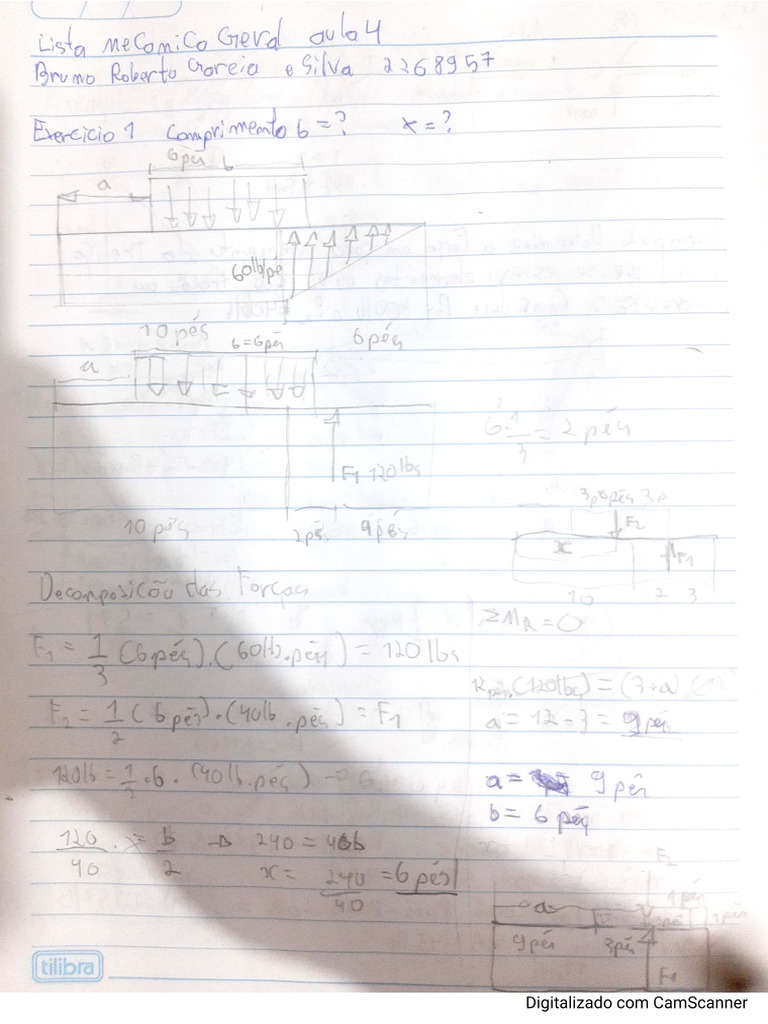 Lista mecanica Geral aula 4
Bruno Roberto Garcia e Silva 2268957
Exercicio 1 Comprimento b = ? x = ?
6 pés b
a
60lb/pé
10 pés b = 6 pés 6 pés
a
6 · 1/3 = 2 pés
F1 120lbs
F2
x
F1
10 2 3
10 pés 2 pés 4 pés
Decomposição das Forças
ΣMA = 0
F1 = 1/3 (6 pés) · (60lb · pés) = 120 lbs
F2 = 1/2 (6 pés) · (40lb · pés) = F1
a = 12 - 3 = 9 pés
120lb = 1/2 · 6 · (40lb · pés)
a = 9 pés
b = 6 pés
120/40 = b/2 → 240 = 40b
x = 240/40 = 6 pés
F2
a
9 pés 3 pés
F1
tilibra
Digitalizado com CamScanner